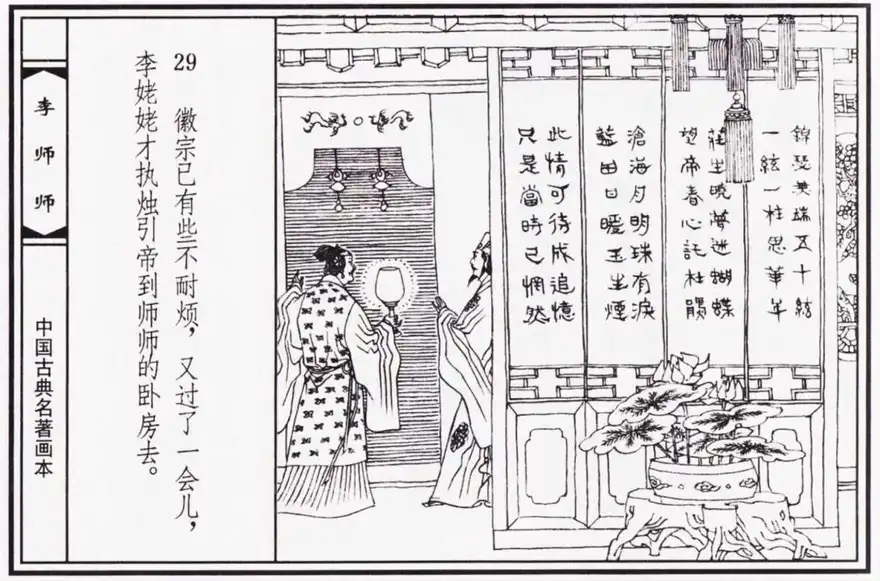 李师师
中国古典名著画本
29 徽宗已有些不耐烦，又过了一会儿，
李姥姥才执烛引帝到师师的卧房去。
錦瑟無端五十絃
一絃一柱思華年
莊生曉夢迷蝴蝶
望帝春心託杜鵑
滄海月明珠有淚
藍田日暖玉生煙
此情可待成追憶
只是當時已惘然